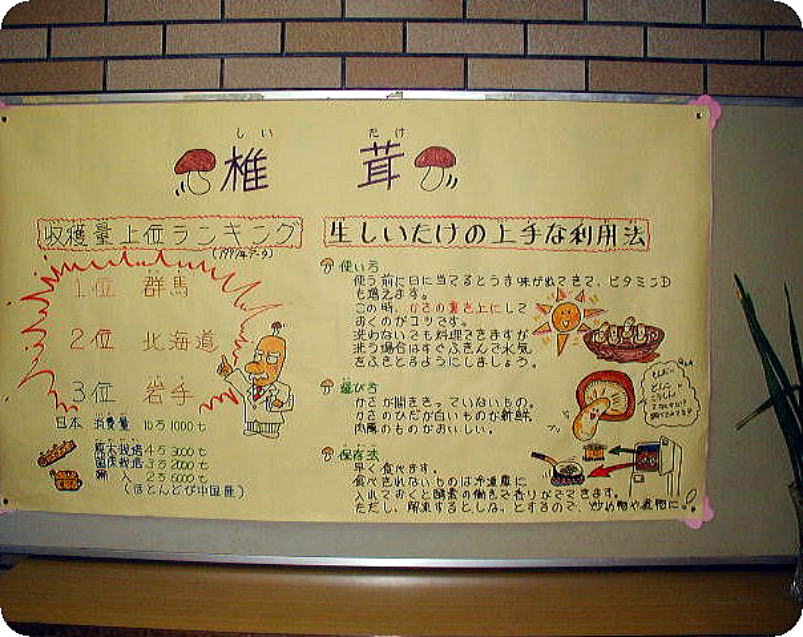 しい たけ
椎 茸
収穫量上位ランキング
(1997年データ)
1位 群馬
2位 北海道
3位 岩手
日本 消費量 10万1000t
原木栽培 4万3000t
菌床栽培 3万2000t
輸入 2万6000t
(ほとんどが中国産)
生しいたけの上手な利用法
使い方
使う前に日に当てるとうま味が出てきて、ビタミンD
も増えます。
この時、かさの裏を上にして
おくのがコツです。
洗わないでも料理できますが
洗う場合はすぐふきんで水気
をふきとるようにしましょう。
選び方
かさが開ききっていないもの。
かさのひだが白いものが新鮮。
肉厚のものがおいしい。
保存法
早く食べます。
食べきれないものは冷凍庫に
入れておくと酵素の働きで香りがでてきます。
ただし、解凍するとしなっとするので、炒め物や煮物に。